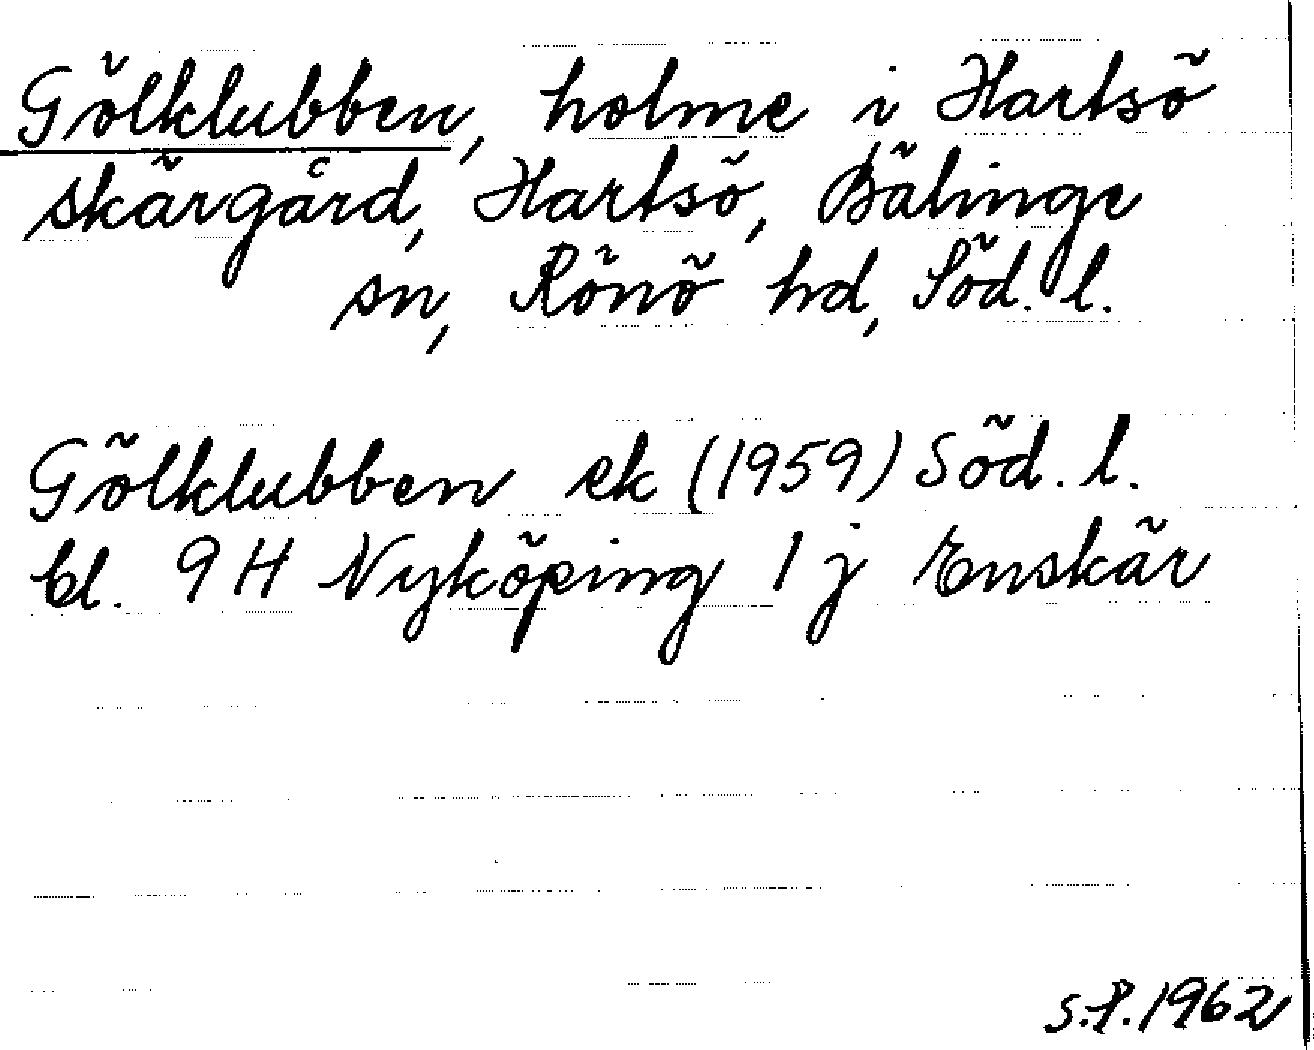 Gölklubben, holme i Hartsö
skärgård, Hartsö, Bälinge
sn, Rönö hd, Söd. l.
Gölklubben ek (1959) Söd. l.
bl. 9 H Nyköping 1 j Enskär
S.P. 1962